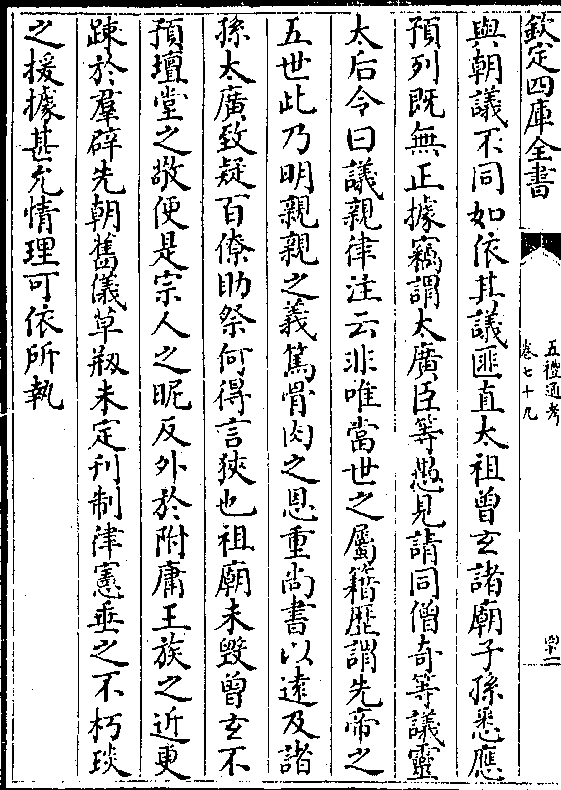 欽定四庫全書
五禮通考
卷七十九
四十二
與朝議不同如依其議匪直太祖曾玄諸廟子孫悉應
預列既無正據竊謂太廣臣等愚見請同僧奇等議靈
太后令曰議親律注云非唯當世之屬籍歷謂先帝之
五世此乃明親親之義篤骨肉之恩重尚書以遠及諸
孫太廣致疑百僚助祭何得言狹也祖廟未毁曾玄不
預壇堂之敬便是宗人之昵反外於附庸王族之近更
踈於羣辟先朝舊儀草刱未定刋制律憲垂之不朽琰
之援據甚允情理可依所執